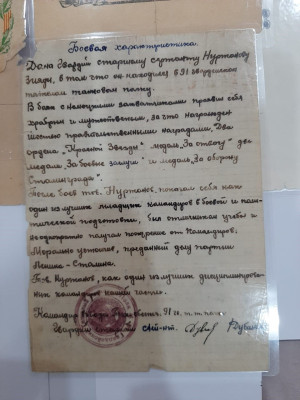 Боевая характеристика.
Дана гвардии старшему сержанту Нуртазову
в том что он находился в 91 гвардейском
тяжелом танковом полку.
В боях с немецкими захватчиками проявил себя
храбрым и мужественным, за что награжден
шестью правительственными наградами, Два
ордена "Красной Звезды" медаль "За отвагу" два
медаль "За боевые заслуги" и медаль "За оборону
Сталинграда".
После боев тов. Нуртазов, показал себя как
один из лучших младших командиров в боевой и поли-
тической подготовки, был отличником учебы и
неоднократно получал поощрение от командиров.
Морально устойчив, преданный делу партии
Ленина - Сталина.
Тов. Нуртазов, как один из лучших дисциплинирова-
нных командиров нашей части.
Командир 91
Гвардии старший лей-нт.